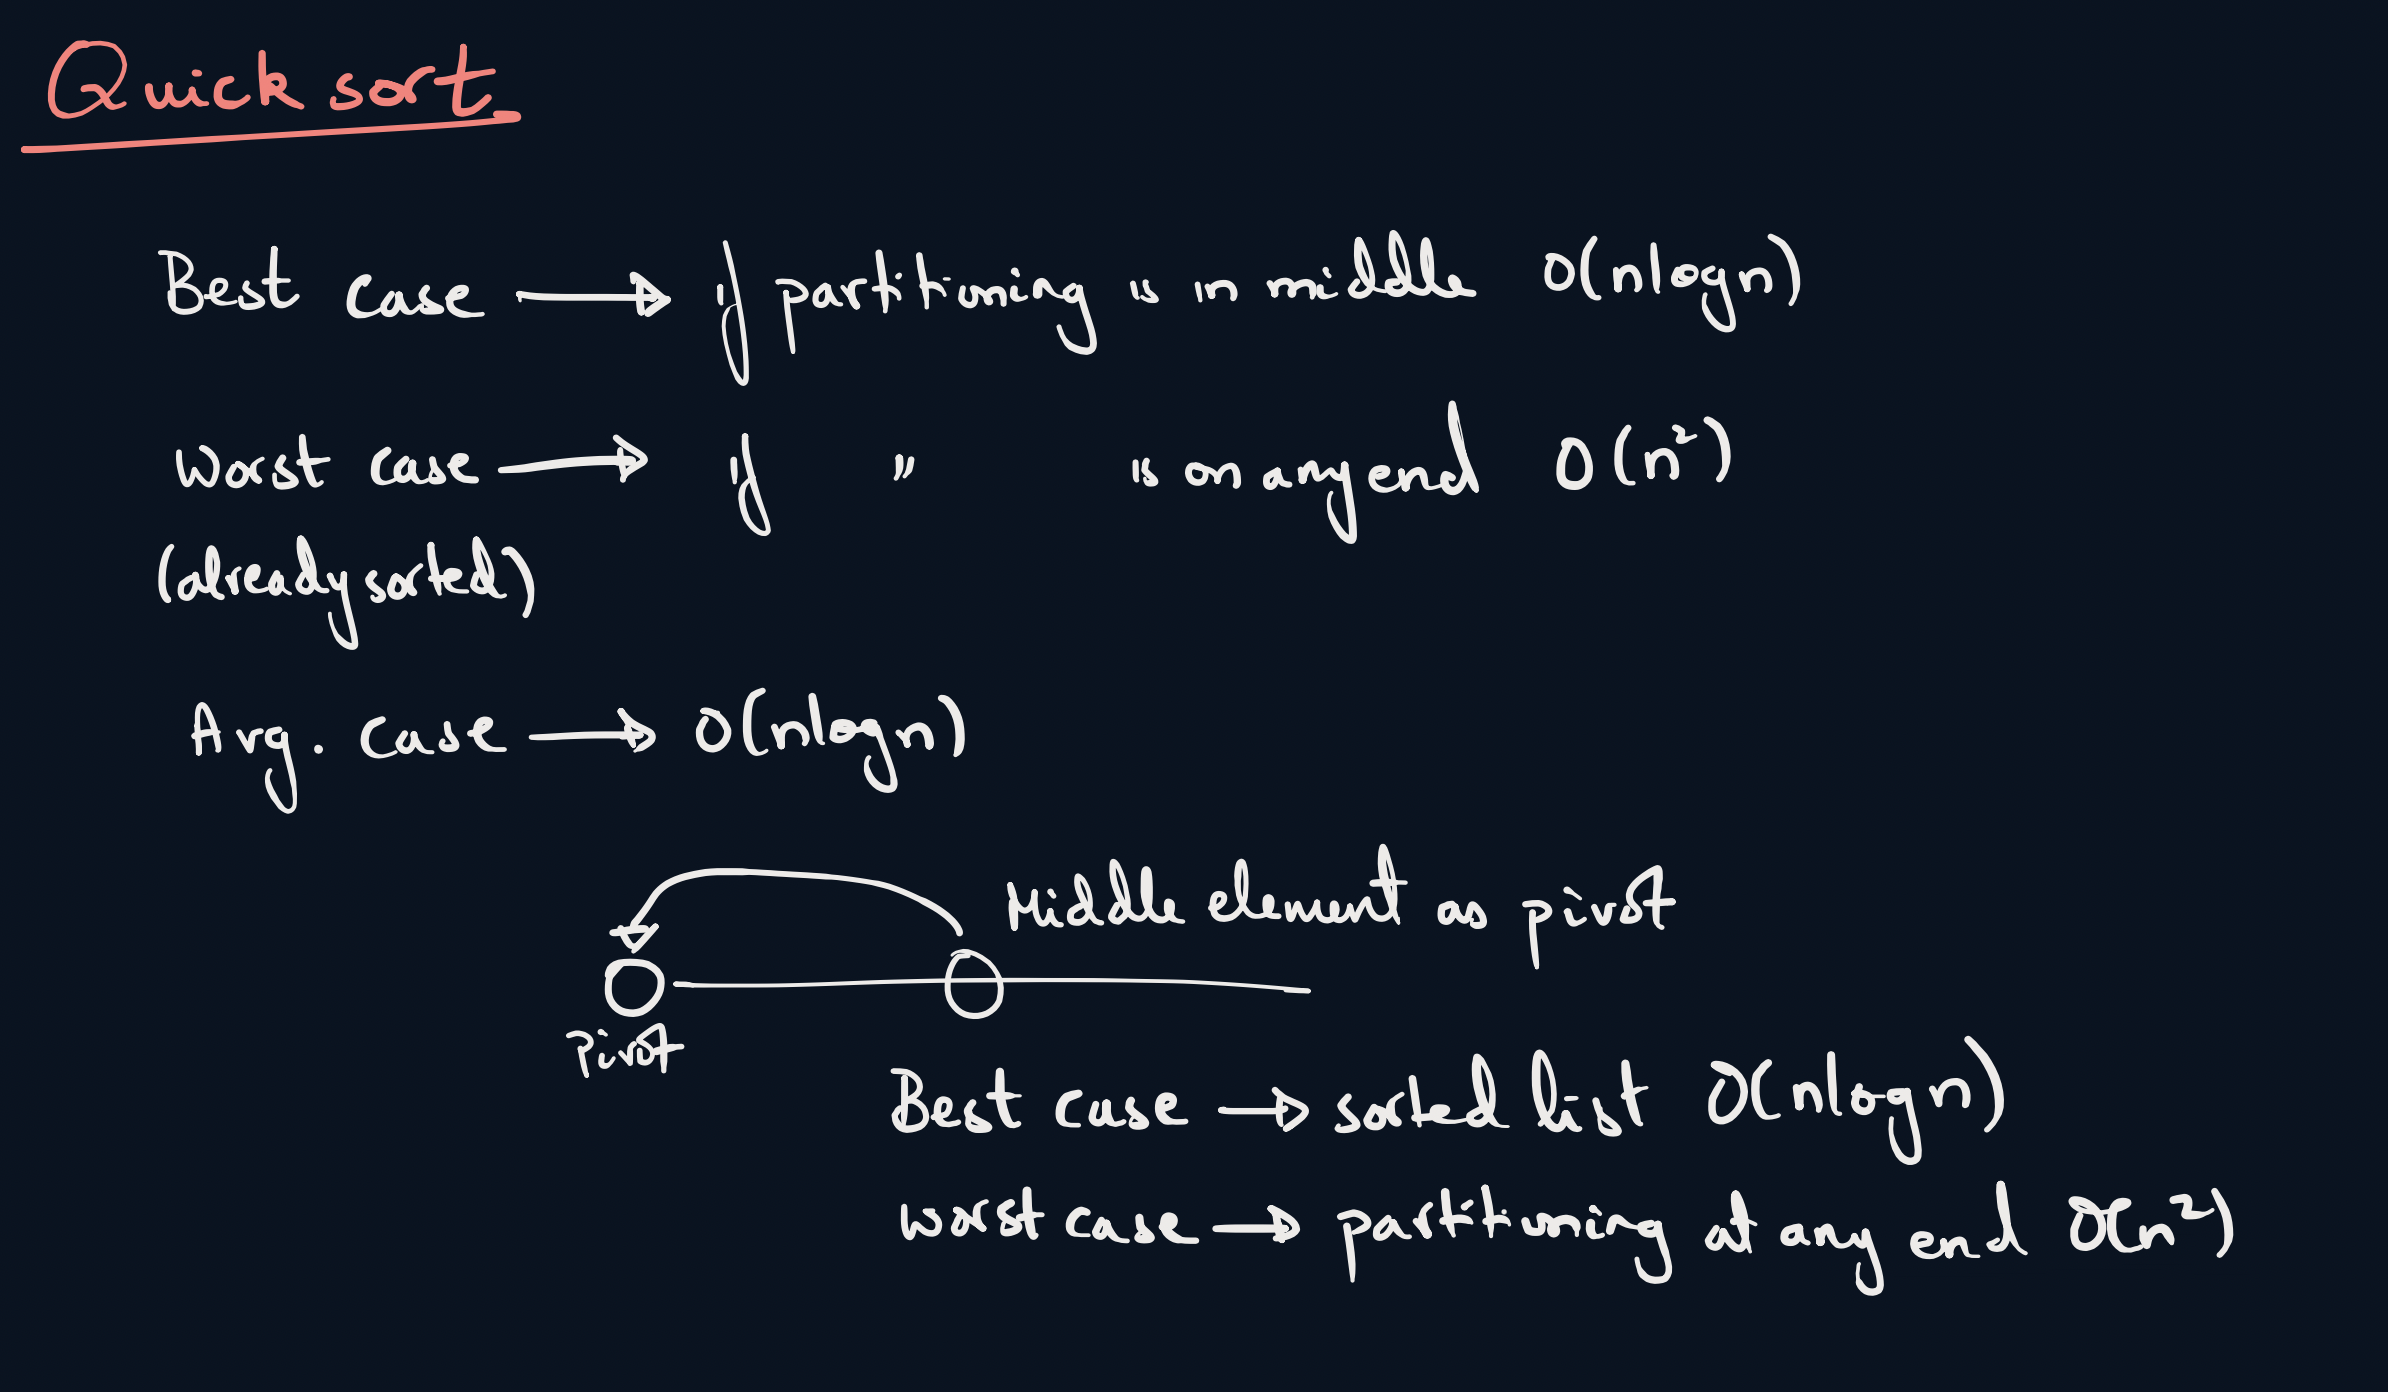 Quick sort
Best case → if partitioning is in middle O(nlogn)
worst case → if " is on any end O(n²)
(already sorted)
Avg. case → O(nlogn)
Middle element as pivot
Pivot
Best case → sorted list O(nlogn)
worst case → partitioning at any end O(n²)